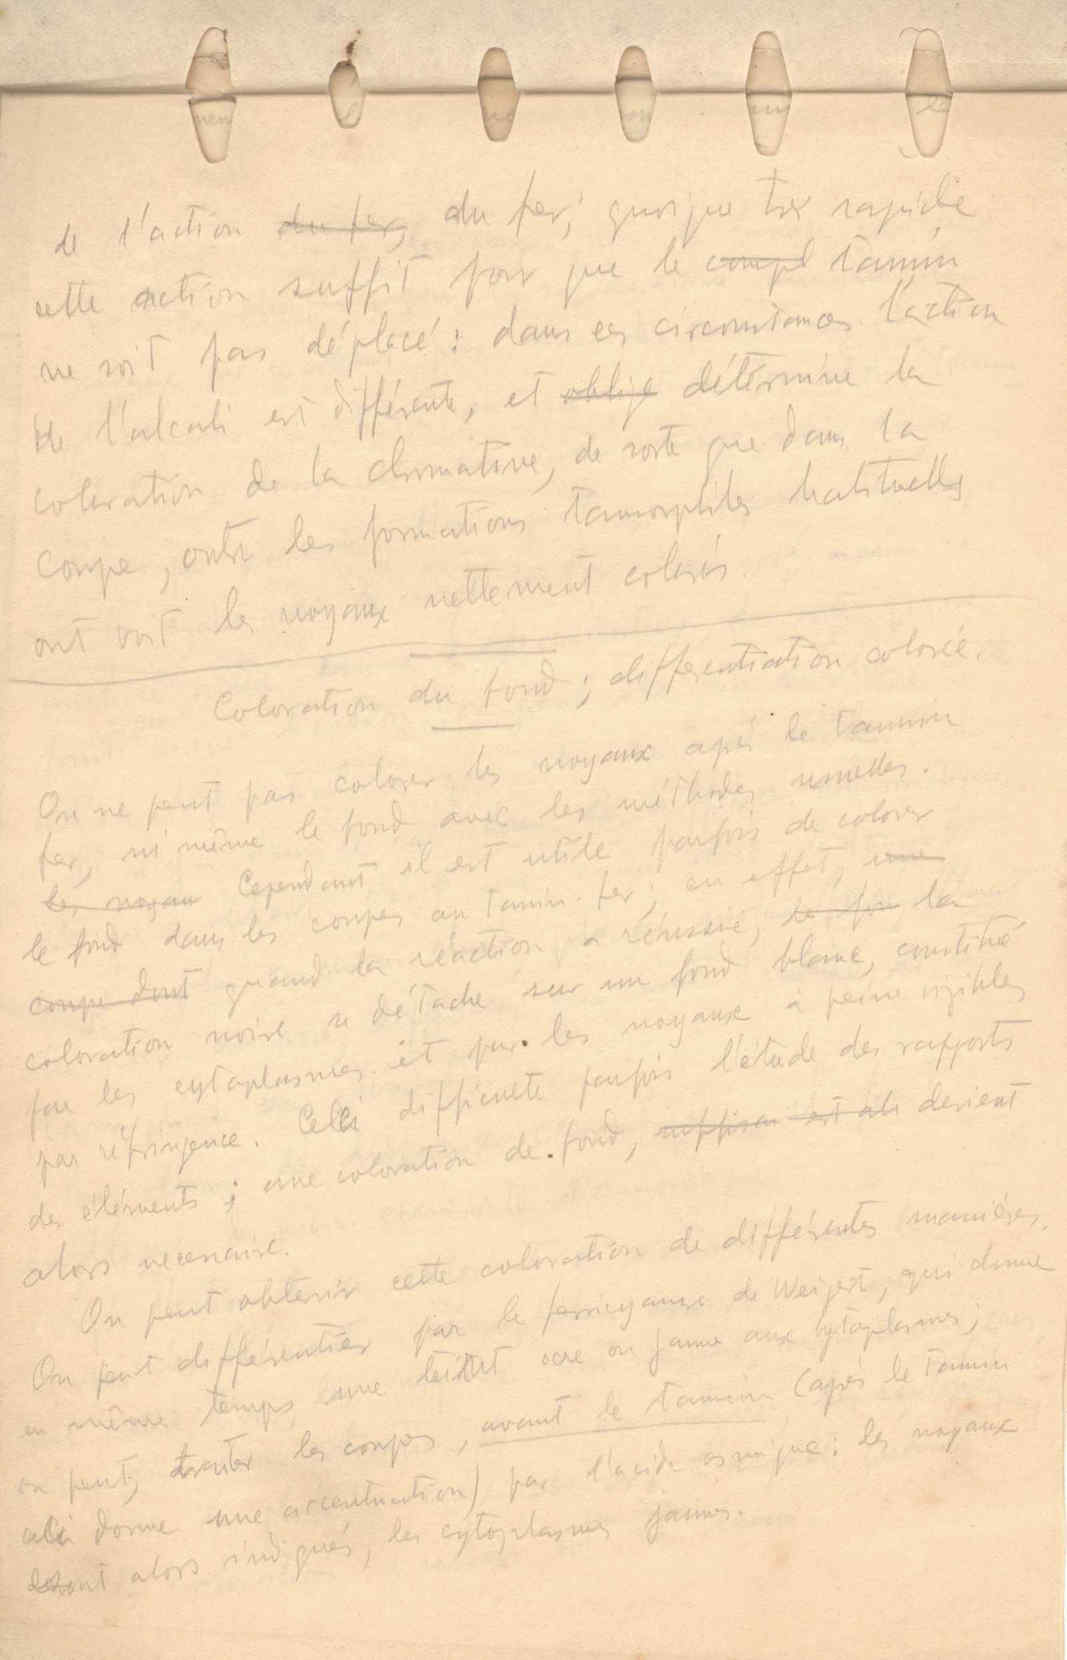 de l'action du fer, du fer; quoique très rapide
cette action suffit pour que le compl tamin
ne soit pas déplacé: dans ces circonstances l'action
de l'alcali est différente, et oblige détermine la
coloration de la chromatine, de sorte que dans la
coupe, outre les formations tannophiles habituelles
ont voit les noyaux nettement colorés.
Coloration du fond; differentiation colorée.
On ne peut pas colorer les noyaux après le tannin
fer, ni même le fond avec les méthodes usuelles.
les noyau Cependant il est utile parfois de colorer
le fond dans les coupes au tamin-fer; en effet, une
coupe dont quand la réaction a réussie, la
coloration noire se détache sur un fond blanc, constitué
par les cytoplasmes et par les noyaux à peine visibles
par réfringence. Celà difficulte parfois l'étude des rapports
des éléments; une coloration de fond, devient
alors necessaire.
On peut obtenir cette coloration de différentes manières.
On peut différentier par le ferricyanure de Weigert, qui donne
en même temps une teint ocre ou jaune aux cytoplasmes;
on peut, traiter les coupes, avant le tannin (après le tamin
celà donne une accentuation) par l'acide osmique: les noyaux
sont alors indiqués, les cytoplasmes jaunes.